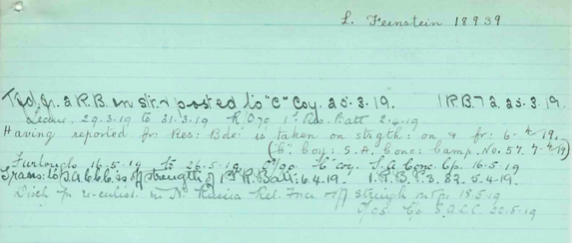 L. Feinstein 18939
Tsd. fr. 2 R.B. on str. & posted to "C" Coy. 25.3.19. 1 R B 72 25.3.19.
Leave 29.3.19 to 31.3.19 1st Res. Batt 2.4.19
Having reported fr Res: Bde: is taken on strgth: on & fr: 6-4-19.
Coy: S.A. Conc: Camp. No. 57. 7-4-19)
Furlough 16.5.19 to 26.5.19 "C" coy. S.A Conc. Cp. 16.5.19
Trans: to S.A.C.C. is off strength of 1st R. Batt: 6.4.19. 1.R.B.P.3. 82. 5.4.19.
Disch re-enlist. in N. Russia Rel. Force off strength 18.5.19
S.A.C.C. 22.5.19